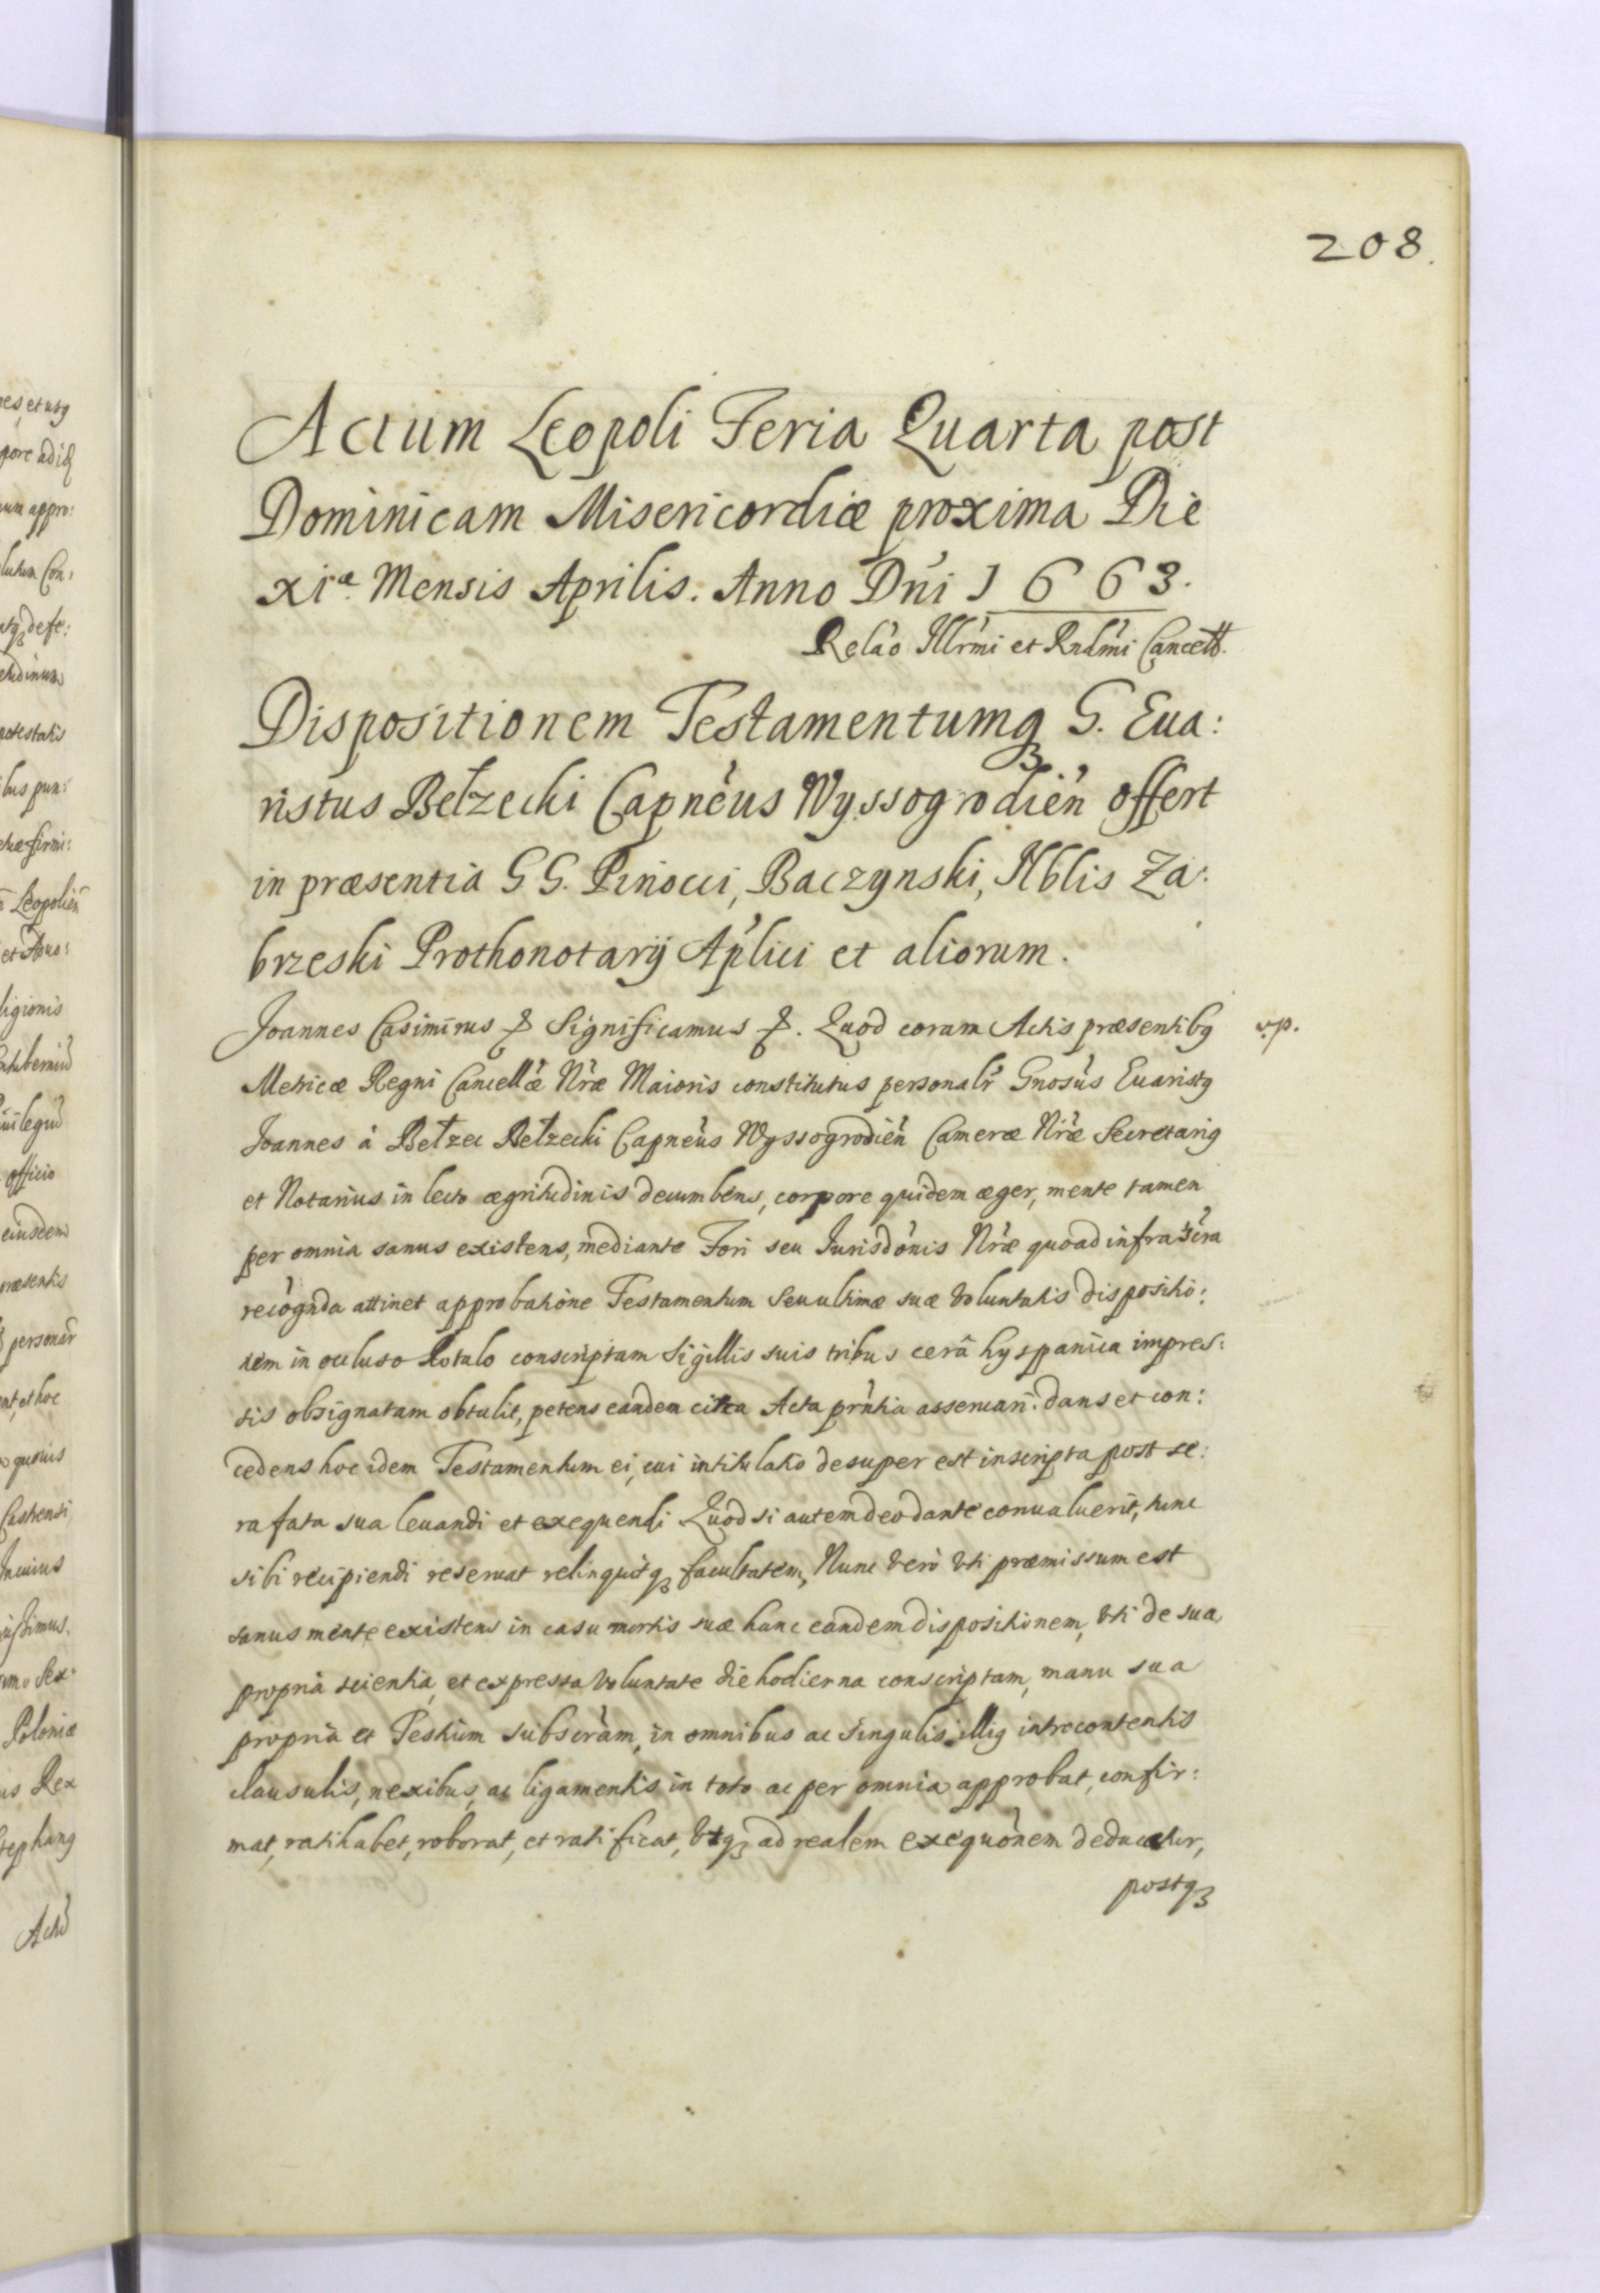 208.
Actum Leopoli Feria Quarta post
Dominicam Misericordiæ proxima Die
xiª. Mensis Aprilis. Anno Dni 1663.
Relào Illrmi et Rndmi Cancell.
Dispositionem Testamentumq3 G. Eua:
ristus Bełzecki Capneus Wyssogrodien offert
in præsentia GG. Pinocci, Baczynski, Nblis Za:
brzeski Prothonotarij Aplici et aliorum.
Joannes Casimirus & Significamus &. Quod coram Actis præsentibq
v.p.
Metricæ Regni Cancellæ Nræ Maioris constitutus personalr Gnosus Euaristq
Joannes à Bełzec Bełzecki Capneus Wyssogrodien Cameræ Nræ Secretariq
et Notarius in lecto ægritudinis decumbens, corpore quidem æger, mente tamen
per omnia sanus existens, mediante Fori seu Jurisdonis Nræ quoad infrascra
recognda attinet approbatione Testamentum seu ultimæ suæ voluntatis dispositio:
nem in occluso Rotulo conscriptam Sigillis suis tribus cerâ hyspanica impres:
sis obsignatam obtulit, petens eandem circa Acta prntia asseruari: dans et con:
cedens hoc idem Testamentum ei, cui intitulatio desuper est inscripta post se:
ra fata sua leuandi et exequendi Quod si autem deo dante conualuerit, tunc
sibi recipiendi reseruat relinquitq3 facultatem, Nunc verò vti præmissum est
sanus mente existens in casu mortis suæ hanc eandem dispositionem, vti de sua
propria scientia, et expressa voluntate die hodierna conscriptam, manu sua
propria et Testium subscràm, in omnibus ac singulis illiq introcontentis
clausulis, nexibus, ac ligamentis in toto ac per omnia approbat, confir:
mat, ratihabet, roborat, et ratificat, vtq3 ad realem exequonem deducatur,
postq3